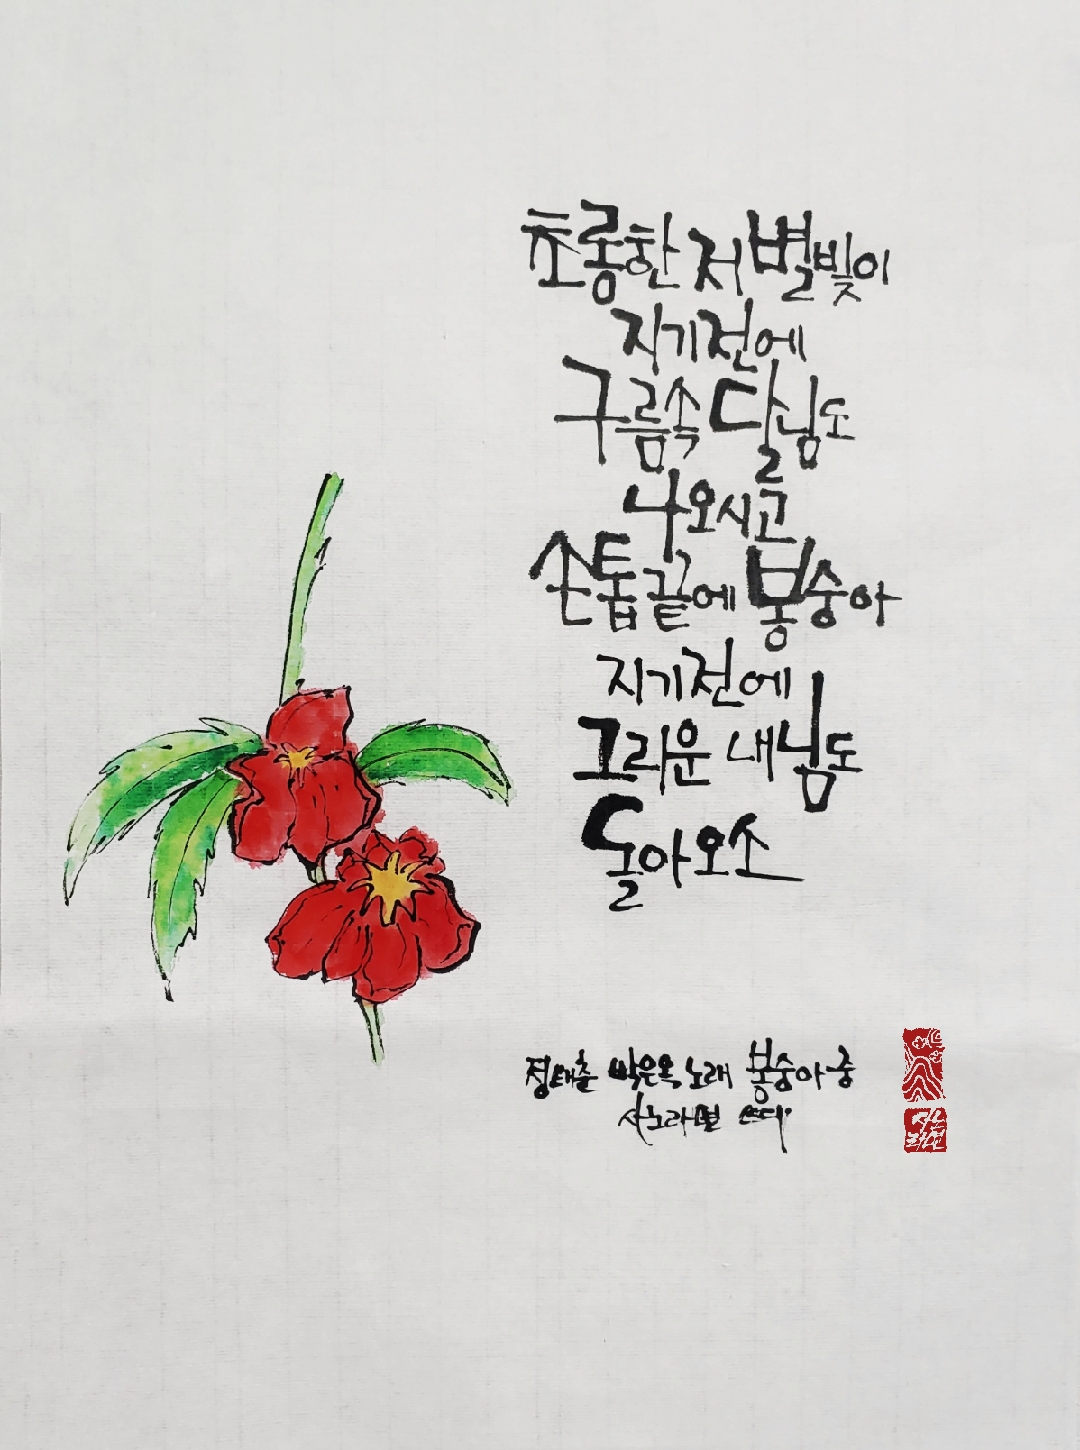 초롱한 저 별빛이
지기전에
구름속 달님도
나오시고
손톱 끝에 봉숭아
지기전에
그리운 내님도
돌아오소
정태춘 박은옥 노래 봉숭아 중
쓰다